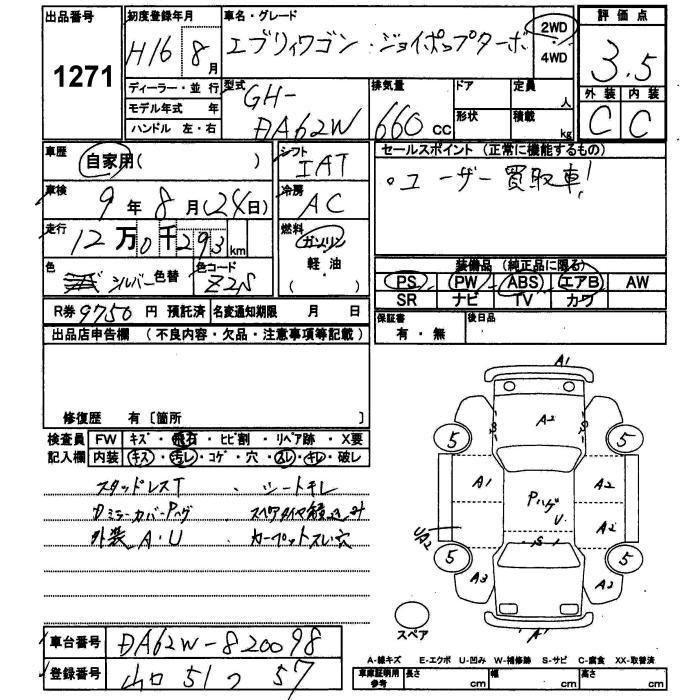 出品番号 1271
初度登録年月 H16 8月
車名・グレード エブリィワゴン・ジョイポップターボ
2WD・4WD
評価点 3.5
外装 内装
C C
ディーラー・並行
モデル年式 年
ハンドル 左・右
型式 GH-DA62W
排気量 660cc
ドア
形状
定員 人
積載 kg
車歴 自家用( )
シフト IAT
車検 9年 8月(24日)
冷房 AC
走行 12万0千293km
燃料 ガソリン 軽油 ( )
色 シルバー 色替
色コード Z2S
R券 9750円 預託済
名変通知期限 月 日
セールスポイント (正常に機能するもの)
。ユーザー買取車!
装備品 (純正品に限る)
PS PW ABS エアB AW
SR ナビ TV カワ
保証書 有・無
後日品
出品店申告欄 (不良内容・欠品・注意事項等記載)
修復歴 有 〔箇所 〕
検査員記入欄
FW キズ・飛石・ヒビ割・リペア跡・X要
内装 キズ・汚レ・コゲ・穴・スレ・キレ・破レ
スタッドレスT ・シートキレ
Dミラーカバーハゲ スペアタイヤ積込み
外装 A・U カーペットスレ穴
車台番号 DA62W-820098
登録番号 山口 51 つ 57
A1
A2
S
5 5
A1 Pハゲ U A2
UA2 A2
S
5 5
A3 A2
A'
スペア
A-線キズ E-エクボ U-凹み W-補修跡 S-サビ C-腐食 XX-取替済
車庫証明用参考 長さ cm 幅 cm 高さ cm